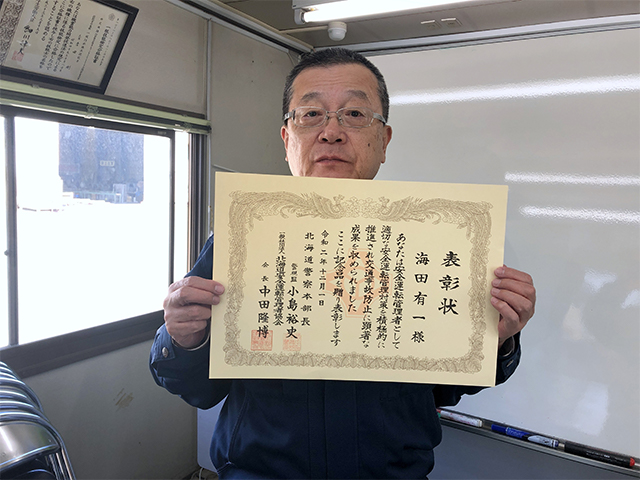 表彰状
海田有一様
あなたは安全運転管理者として
適切な安全運転管理対策を積極的に
推進され交通事故防止に顕著な
成果を収められました
ここに記念品を贈り表彰します
令和二年十二月一日
北海道警察本部長
警視監 小島裕史
一般社団法人北海道安全運転管理者協会
会長 中田隆博